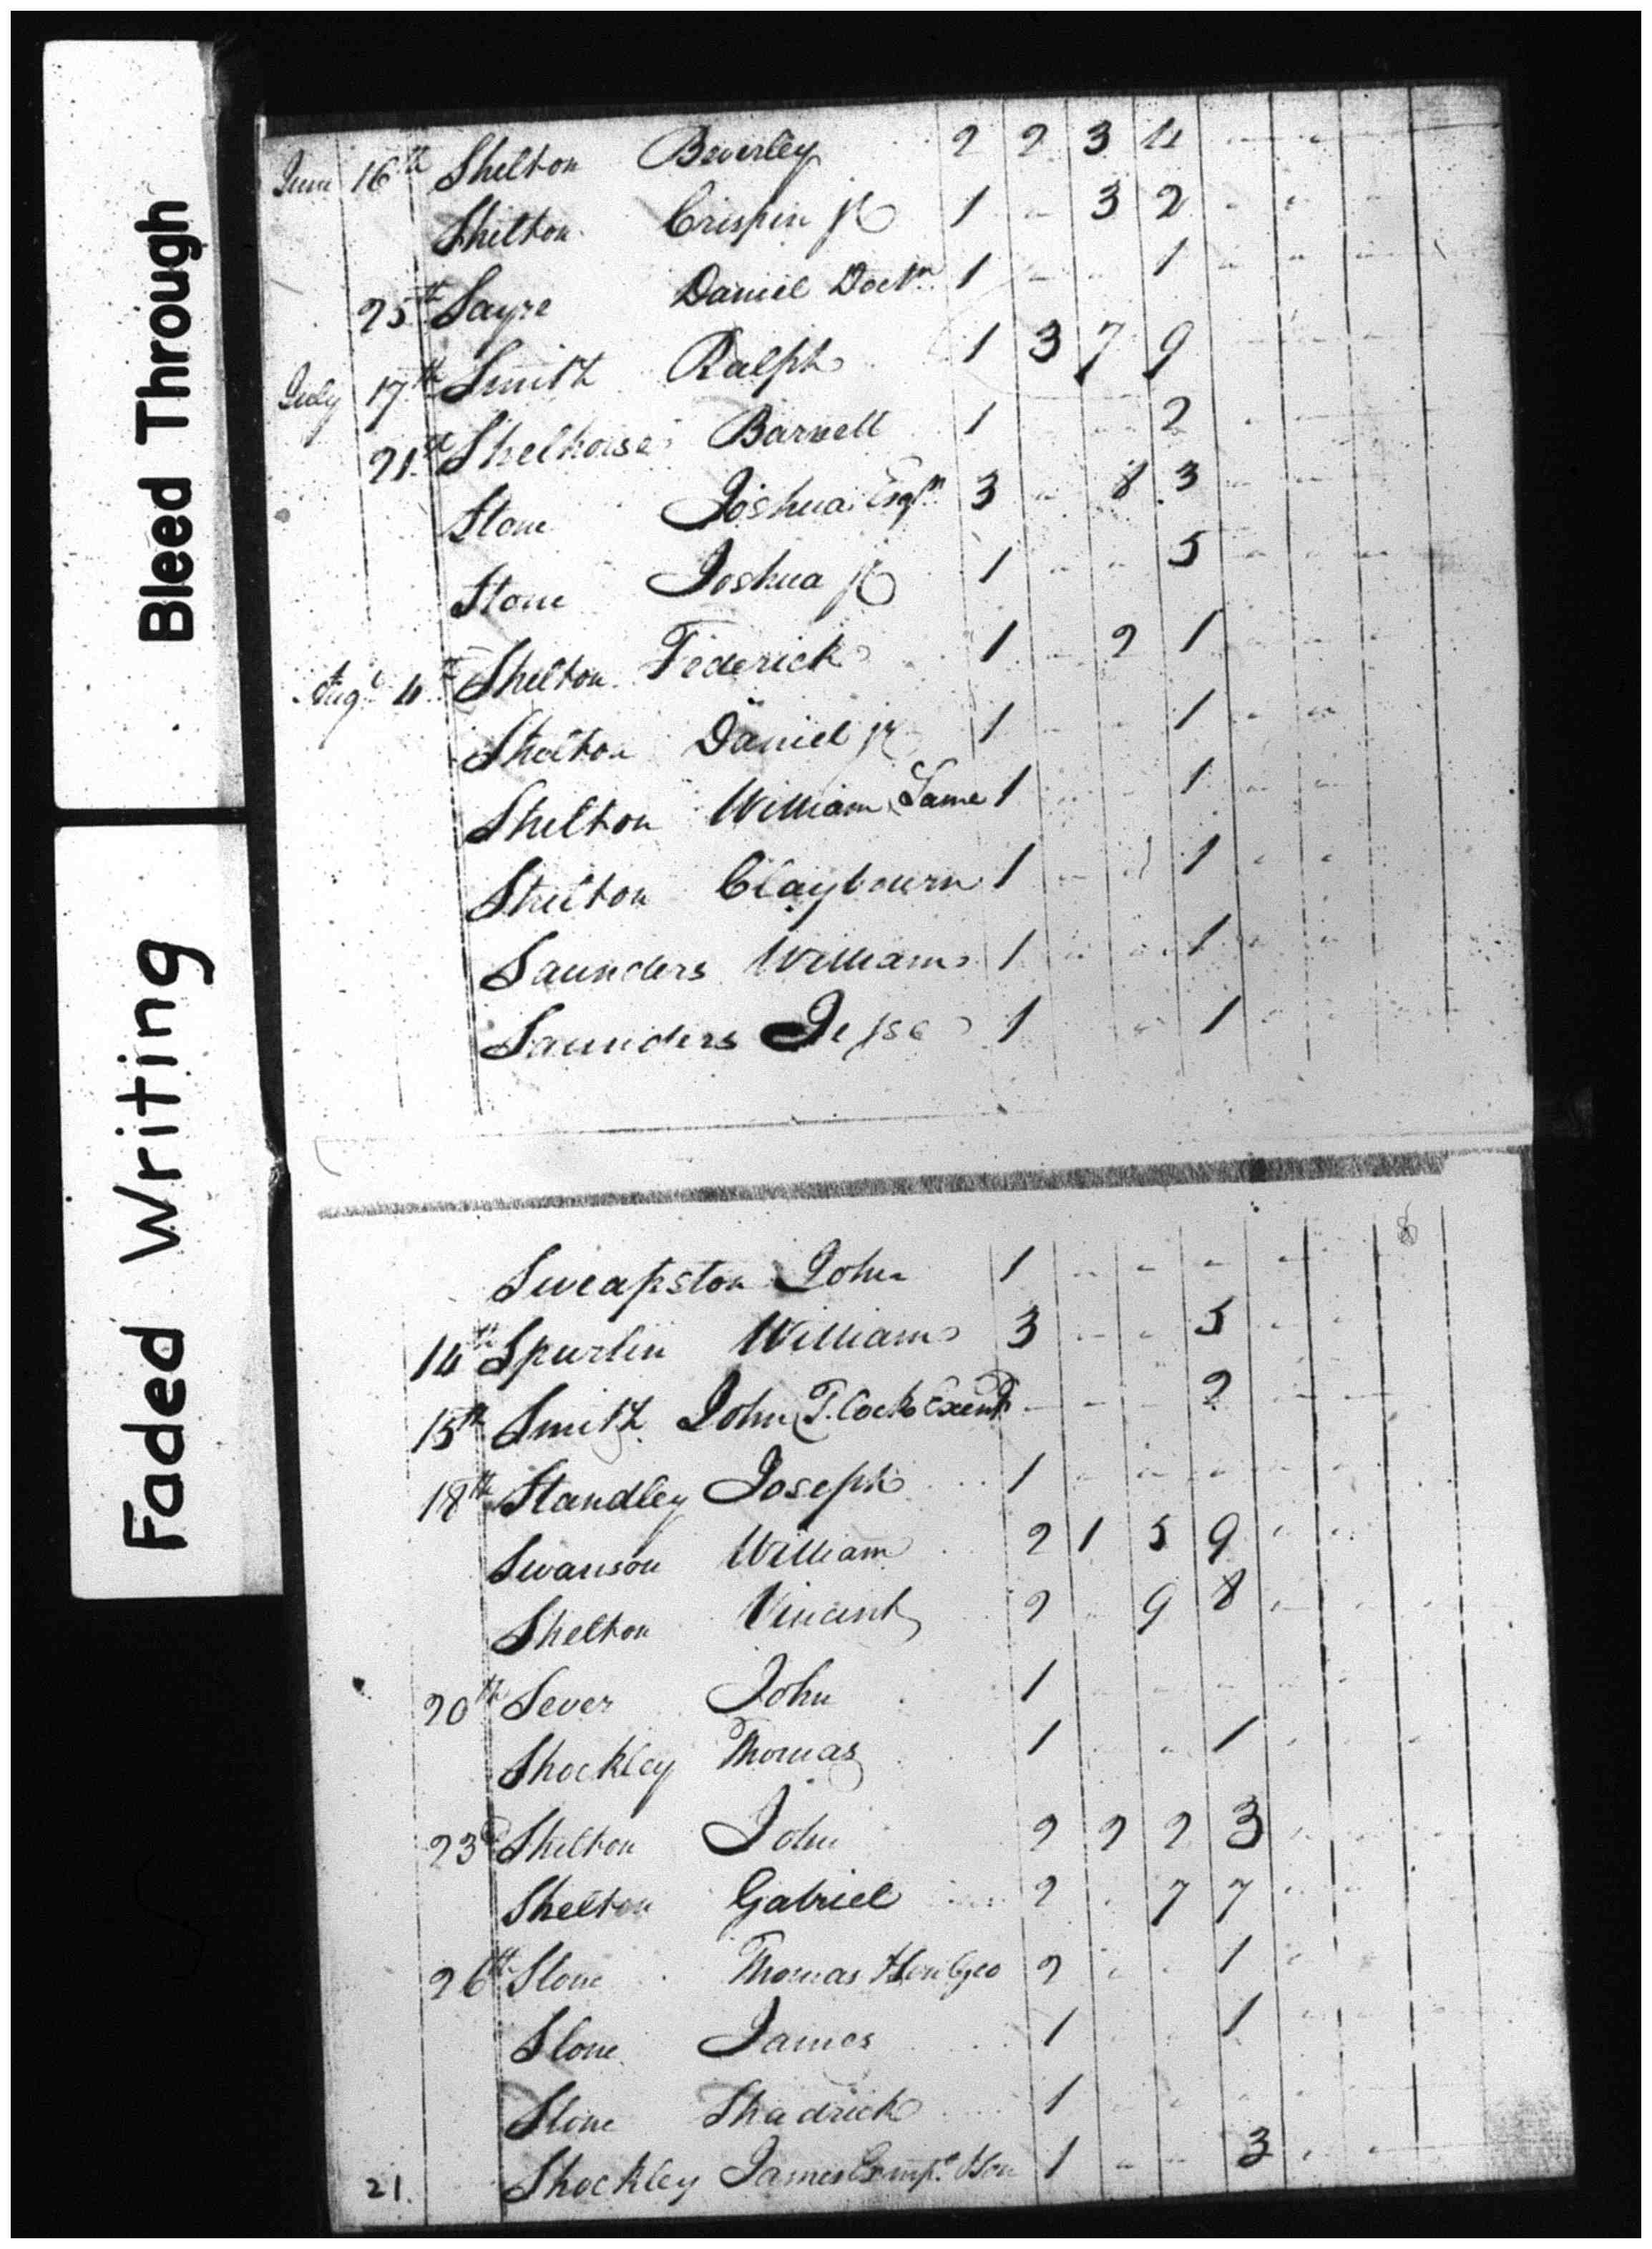 Bleed Through
Faded Writing
June 16th Shelton Beverley 2 2 3 4
Shelton Crispin jr 1 - 3 2
25th Sayre Daniel Doctr 1 - - 1
July 17th Smith Ralph 1 3 7 9
21st Shelhorse Barnett 1 2
Stone Joshua Esqr 3 - 8 3
Stone Joshua jr 1 - - 5
Augt 4th Shelton Federick 1 - 2 1
Shelton Daniel jr 1 - - 1
Shelton William Lame 1 1
Shelton Claybourn 1 - 1
Saunders William 1 - - 1
Saunders Jesse 1 - 1
Sweapston John 1 - - - -
14th Spurlin William 3 - - 5
15th Smith John T. Cock - - - 2
18th Standley Joseph 1 - - -
Swanson William 2 1 5 9
Shelton Vincent 2 - 9 8
20th Sever John 1
Shockley Thomas 1 - - 1
23d Shelton John 2 2 2 3
Shelton Gabriel 2 - 7 7
26th Stone Thomas 2 - - 1
Stone James 1 - - 1
Stone Shadrick 1
21. Shockley James 1 - - 3